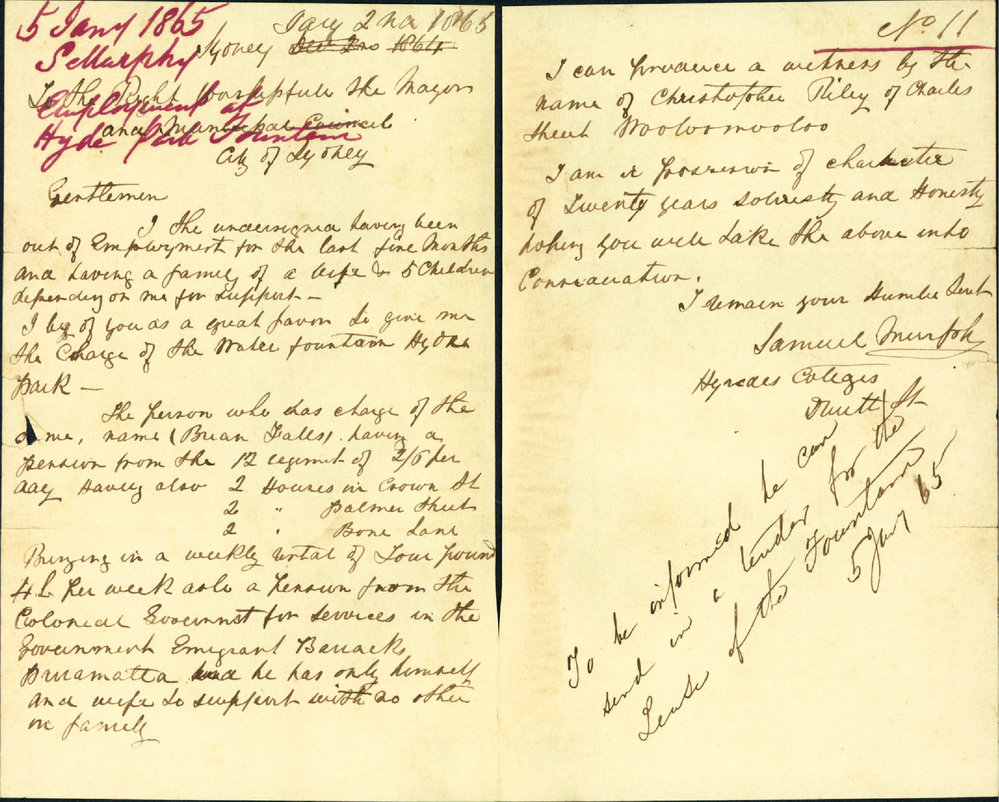 5 Jany 1865
S Murphy
Employment at
Hyde Park Fountain
Jany 2nd 1865
Sydney Decr 2nd 1864
To the Right Worshipfull the Mayor
and Municipal Council
City of Sydney
Gentlemen
I the undersigned having been
out of Employment for the last five Months
and having a family of a wife & 5 Children
depending on me for support —
I beg of you as a great favor to give me
the Charge of the Water fountain Hyde
Park —
The person who has charge of the
same, name (Brian Fales) having a
pension from the 12 regiment of 2/6 per
day Having also 2 Houses in Crown St
2 " Palmer Street
2 " Bone Lane
Bringing in a weekly rental of Four pound
4 L per week also a pension from the
Colonial Governmt for services in the
Government Emigrant Barracks
Parramatta and he has only himself
and wife to support with no other
in family
No 11
I can produce a witness by the
name of Christopher Riley of Charles
Street Woolloomooloo
I am in possession of character
of Twenty years sobriety and Honesty
hoping you will take the above into
Consideration.
I remain your Humble Servt
Samuel Murphy
Cotteges
St
To be informed he can
send in a tender for the
Lease of the Fountain
5 Jany 65